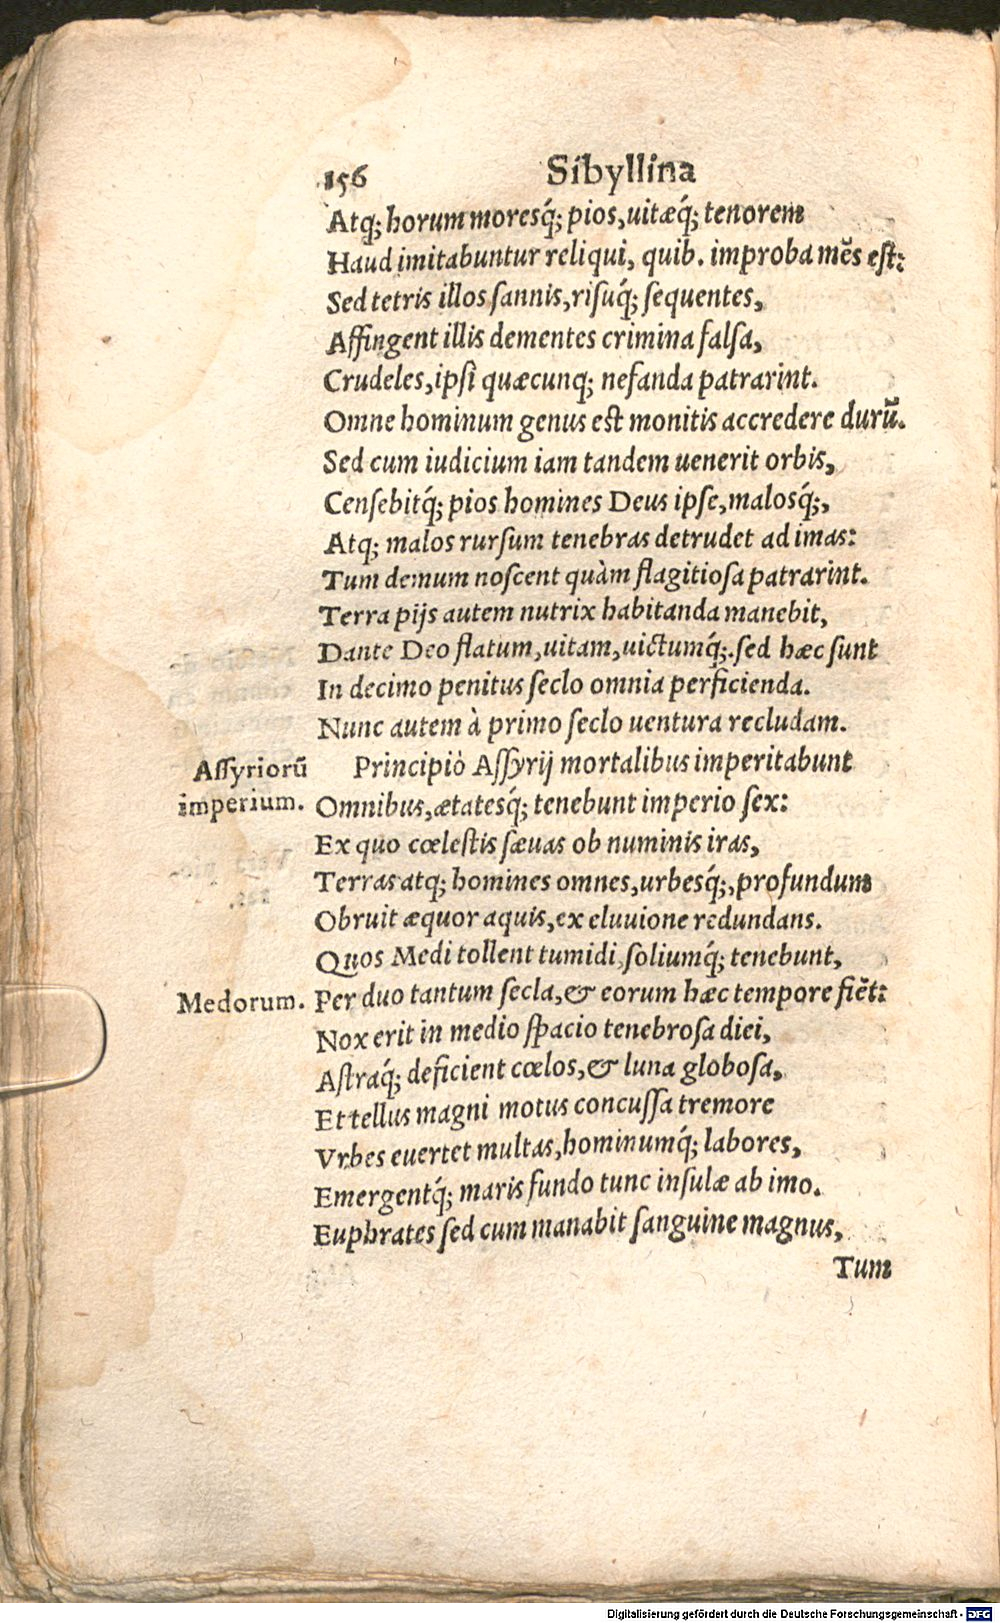 156 Sibyllina
Atq; horum moresq́; pios, uitæq́; tenorem
Haud imitabuntur reliqui, quib. improba mẽs est:
Sed tetris illos sannis, risuq́; sequentes,
Affingent illis dementes crimina falsa,
Crudeles, ipsi quæcunq; nefanda patrarint.
Omne hominum genus est monitis accredere durũ.
Sed cum iudicium iam tandem uenerit orbis,
Censebitq́; pios homines Deus ipse, malosq́;,
Atq; malos rursum tenebras detrudet ad imas:
Tum demum noscent quàm flagitiosa patrarint.
Terra pijs autem nutrix habitanda manebit,
Dante Deo flatum, uitam, uictumq́;. sed hæc sunt
In decimo penitus seclo omnia perficienda.
Nunc autem à primo seclo uentura recludam.
Assyriorũ Principiò Assyrij mortalibus imperitabunt
imperium. Omnibus, ætatesq́; tenebunt imperio sex:
Ex quo cœlestis sæuas ob numinis iras,
Terras atq; homines omnes, urbesq́;, profundum
Obruit æquor aquis, ex eluuione redundans.
Quos Medi tollent tumidi, soliumq́; tenebunt,
Medorum. Per duo tantum secla, & eorum hæc tempore fiẽt:
Nox erit in medio spacio tenebrosa diei,
Astraq́; deficient cœlos, & luna globosa,
Et tellus magni motus concussa tremore
Vrbes euertet multas, hominumq́; labores,
Emergentq́; maris fundo tunc insulæ ab imo.
Euphrates sed cum manabit sanguine magnus,
Tum
Digitalisierung gefördert durch die Deutsche Forschungsgemeinschaft - DFG